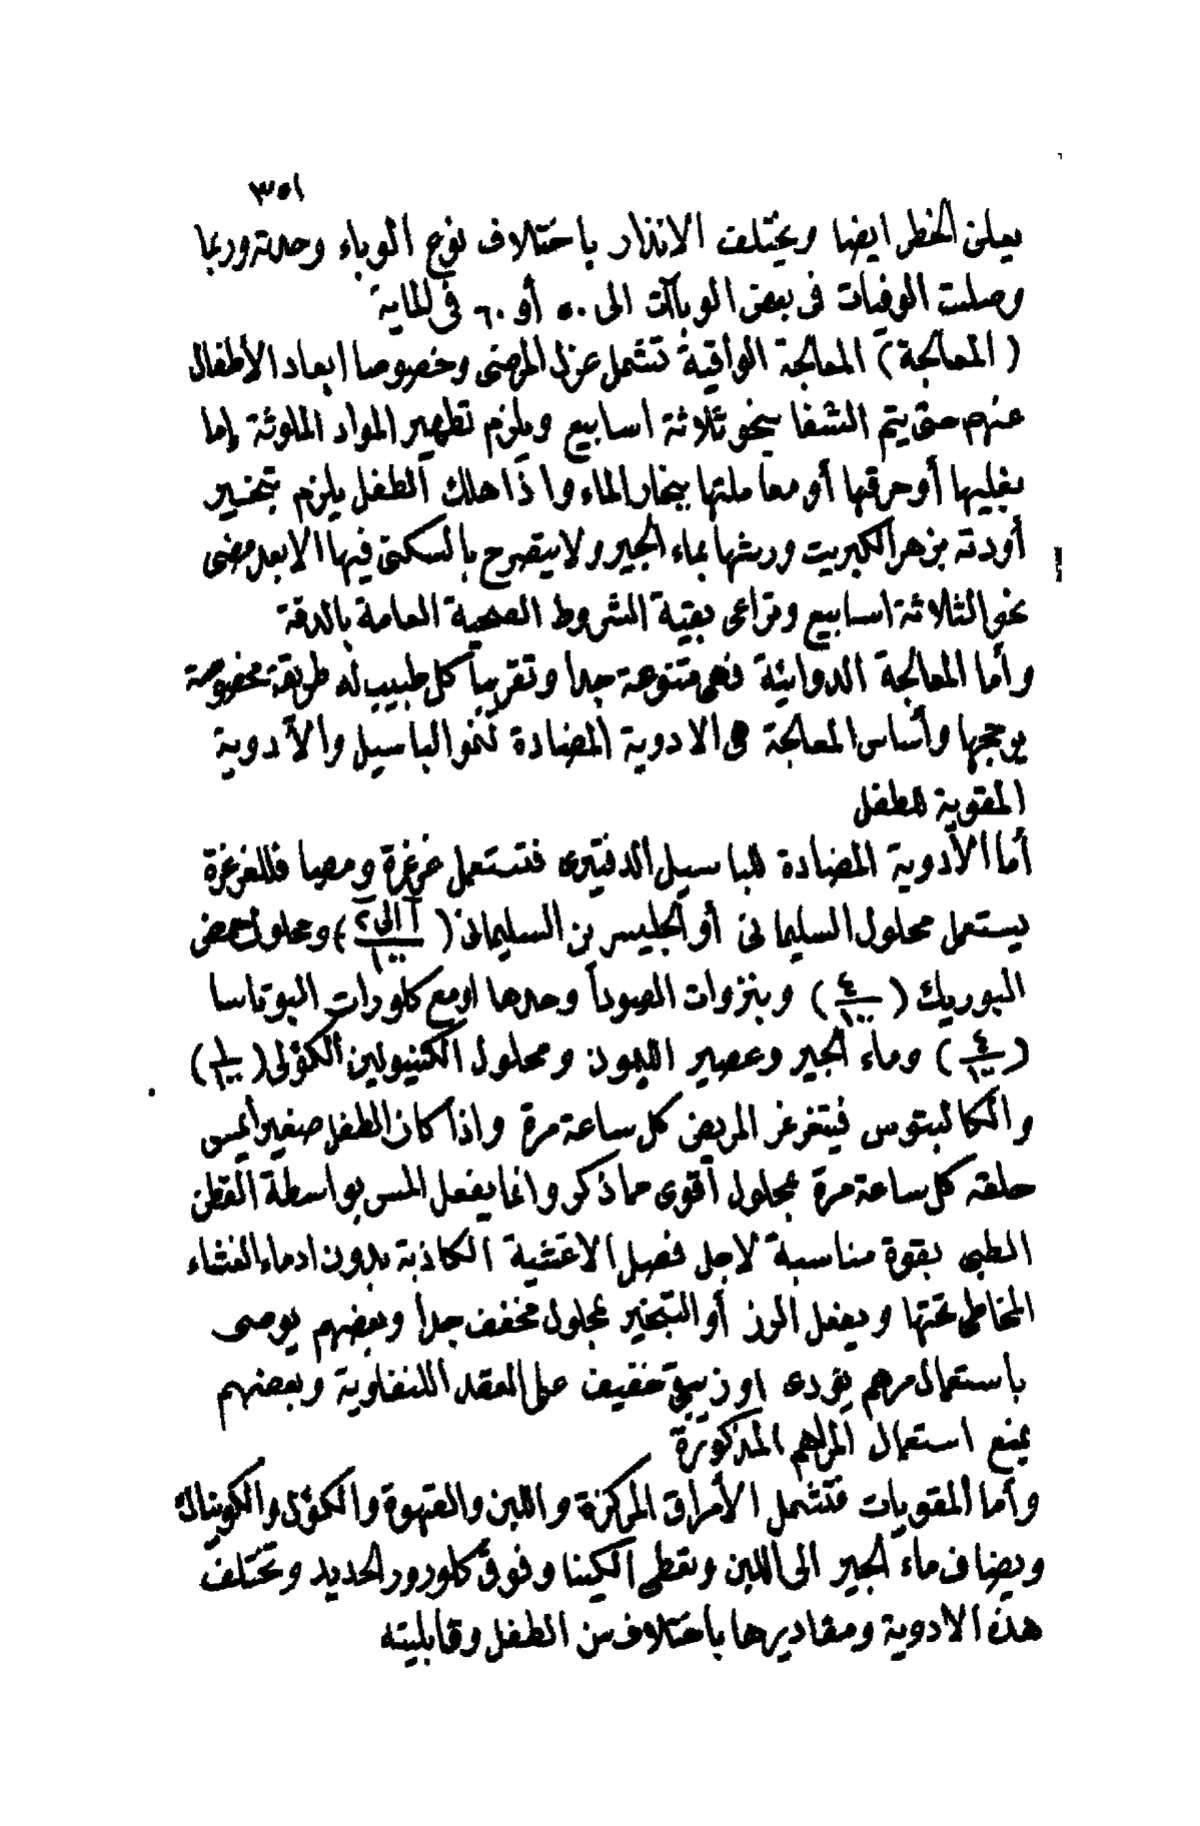 ٣٥١
يعلن الخطر ايضا ويختلف الانذار باختلاف نوع الوباء وحدته وربما
وصلت الوفيات فى بعض الوباآت الى ٥٠ أو ٦٠ فى الماية
(المعالجة) المعالجة الواقية تشمل عزل المرضى وخصوصا ابعاد الأطفال
عنهم حتى يتم الشفا بنحو ثلاثة اسابيع ويلزم تطهير المواد الملوثة إما
بغليها أو حرقها أو معاملتها ببخار الماء واذا هلك الطفل يلزم تبخير
أودته بزهر الكبريت ورشها بماء الجير ولا يتصرح بالسكنى فيها الا بعد مضى
نحو الثلاثة اسابيع وتراعى بقية الشروط الصحية العامة بالدقة
وأما المعالجة الدوائية فهى متنوعة جدا وتقريباً كل طبيب له طريقة مخصوصة
يرجحها وأساس المعالجة هى الادوية المضادة لنمو الباسيل والأدوية
المقوية للطفل
أما الأدوية المضادة للباسيل الدفتيرى فتستعمل غرغرة ومصا فللغرغرة
يستعمل محلول السليمانى أو الجليسرين السليمانى (١ الى ٢/١٠٠٠) ومحلول حمض
البوريك (٤/١٠٠) وبنزوات الصودا وحدها او مع كلورات البوتاسا
(٤/١٠٠) وماء الجير وعصير الليمون ومحلول الكنيولين الكؤلى (١/١٠٠)
والكالبتوس فيتغرغر المريض كل ساعة مرة واذا كان الطفل صغيرا يمس
حلقه كل ساعة مرة بمحلول أقوى مما ذكر وانما يفعل المس بواسطة القطن
الطبى بقوة مناسبة لاجل فصل الاغشية الكاذبة بدون ادماء الغشاء
المخاطى تحتها ويفعل الرز أو التبخير بمحلول مخفف جدا وبعضهم يوصى
باستعمال مرهم يؤدى او زيبقى خفيف على العقد اللنفاوية وبعضهم
يمنع استعمال المراهم المذكورة
وأما المقويات فتشمل الأمراق المركزة واللبن والقهوة والكؤل والكونياك
ويضاف ماء الجير الى اللبن ويعطى الكينا وفوق كلورور الحديد وتختلف
هذه الادوية ومقاديرها باختلاف سن الطفل وقابليته